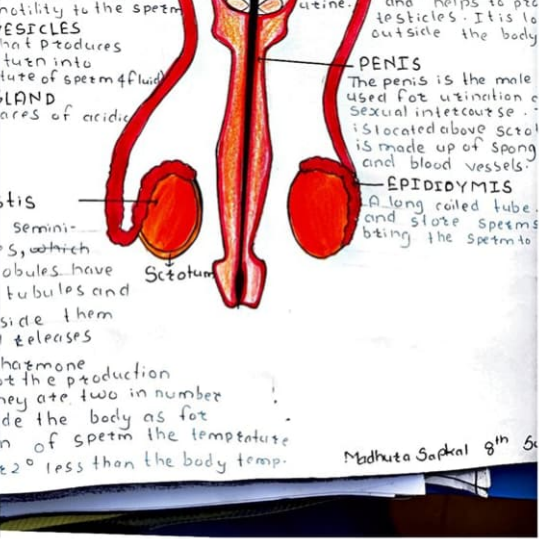 motility to the sperm
VESICLES
that produces
turn into
ture of sperm & fluid
GLAND
ares of acidic
stis
semini-
s, which
obules have
tubules and
side them
releases
hormone
ot the production
hey are two in number
de the body as for
n of sperm the temprature
2° less than the body temp.
Scrotum
urine.
and helps to pro
testicles. It is lo
outside the body
PENIS
The penis is the male
used for urination
sexual intercourse.
is located above scro
is made up of spong
and blood vessels.
EPIDIDYMIS
A long coiled tube.
and store sperms
bring the sperm to
Madhura Sapkal 8th